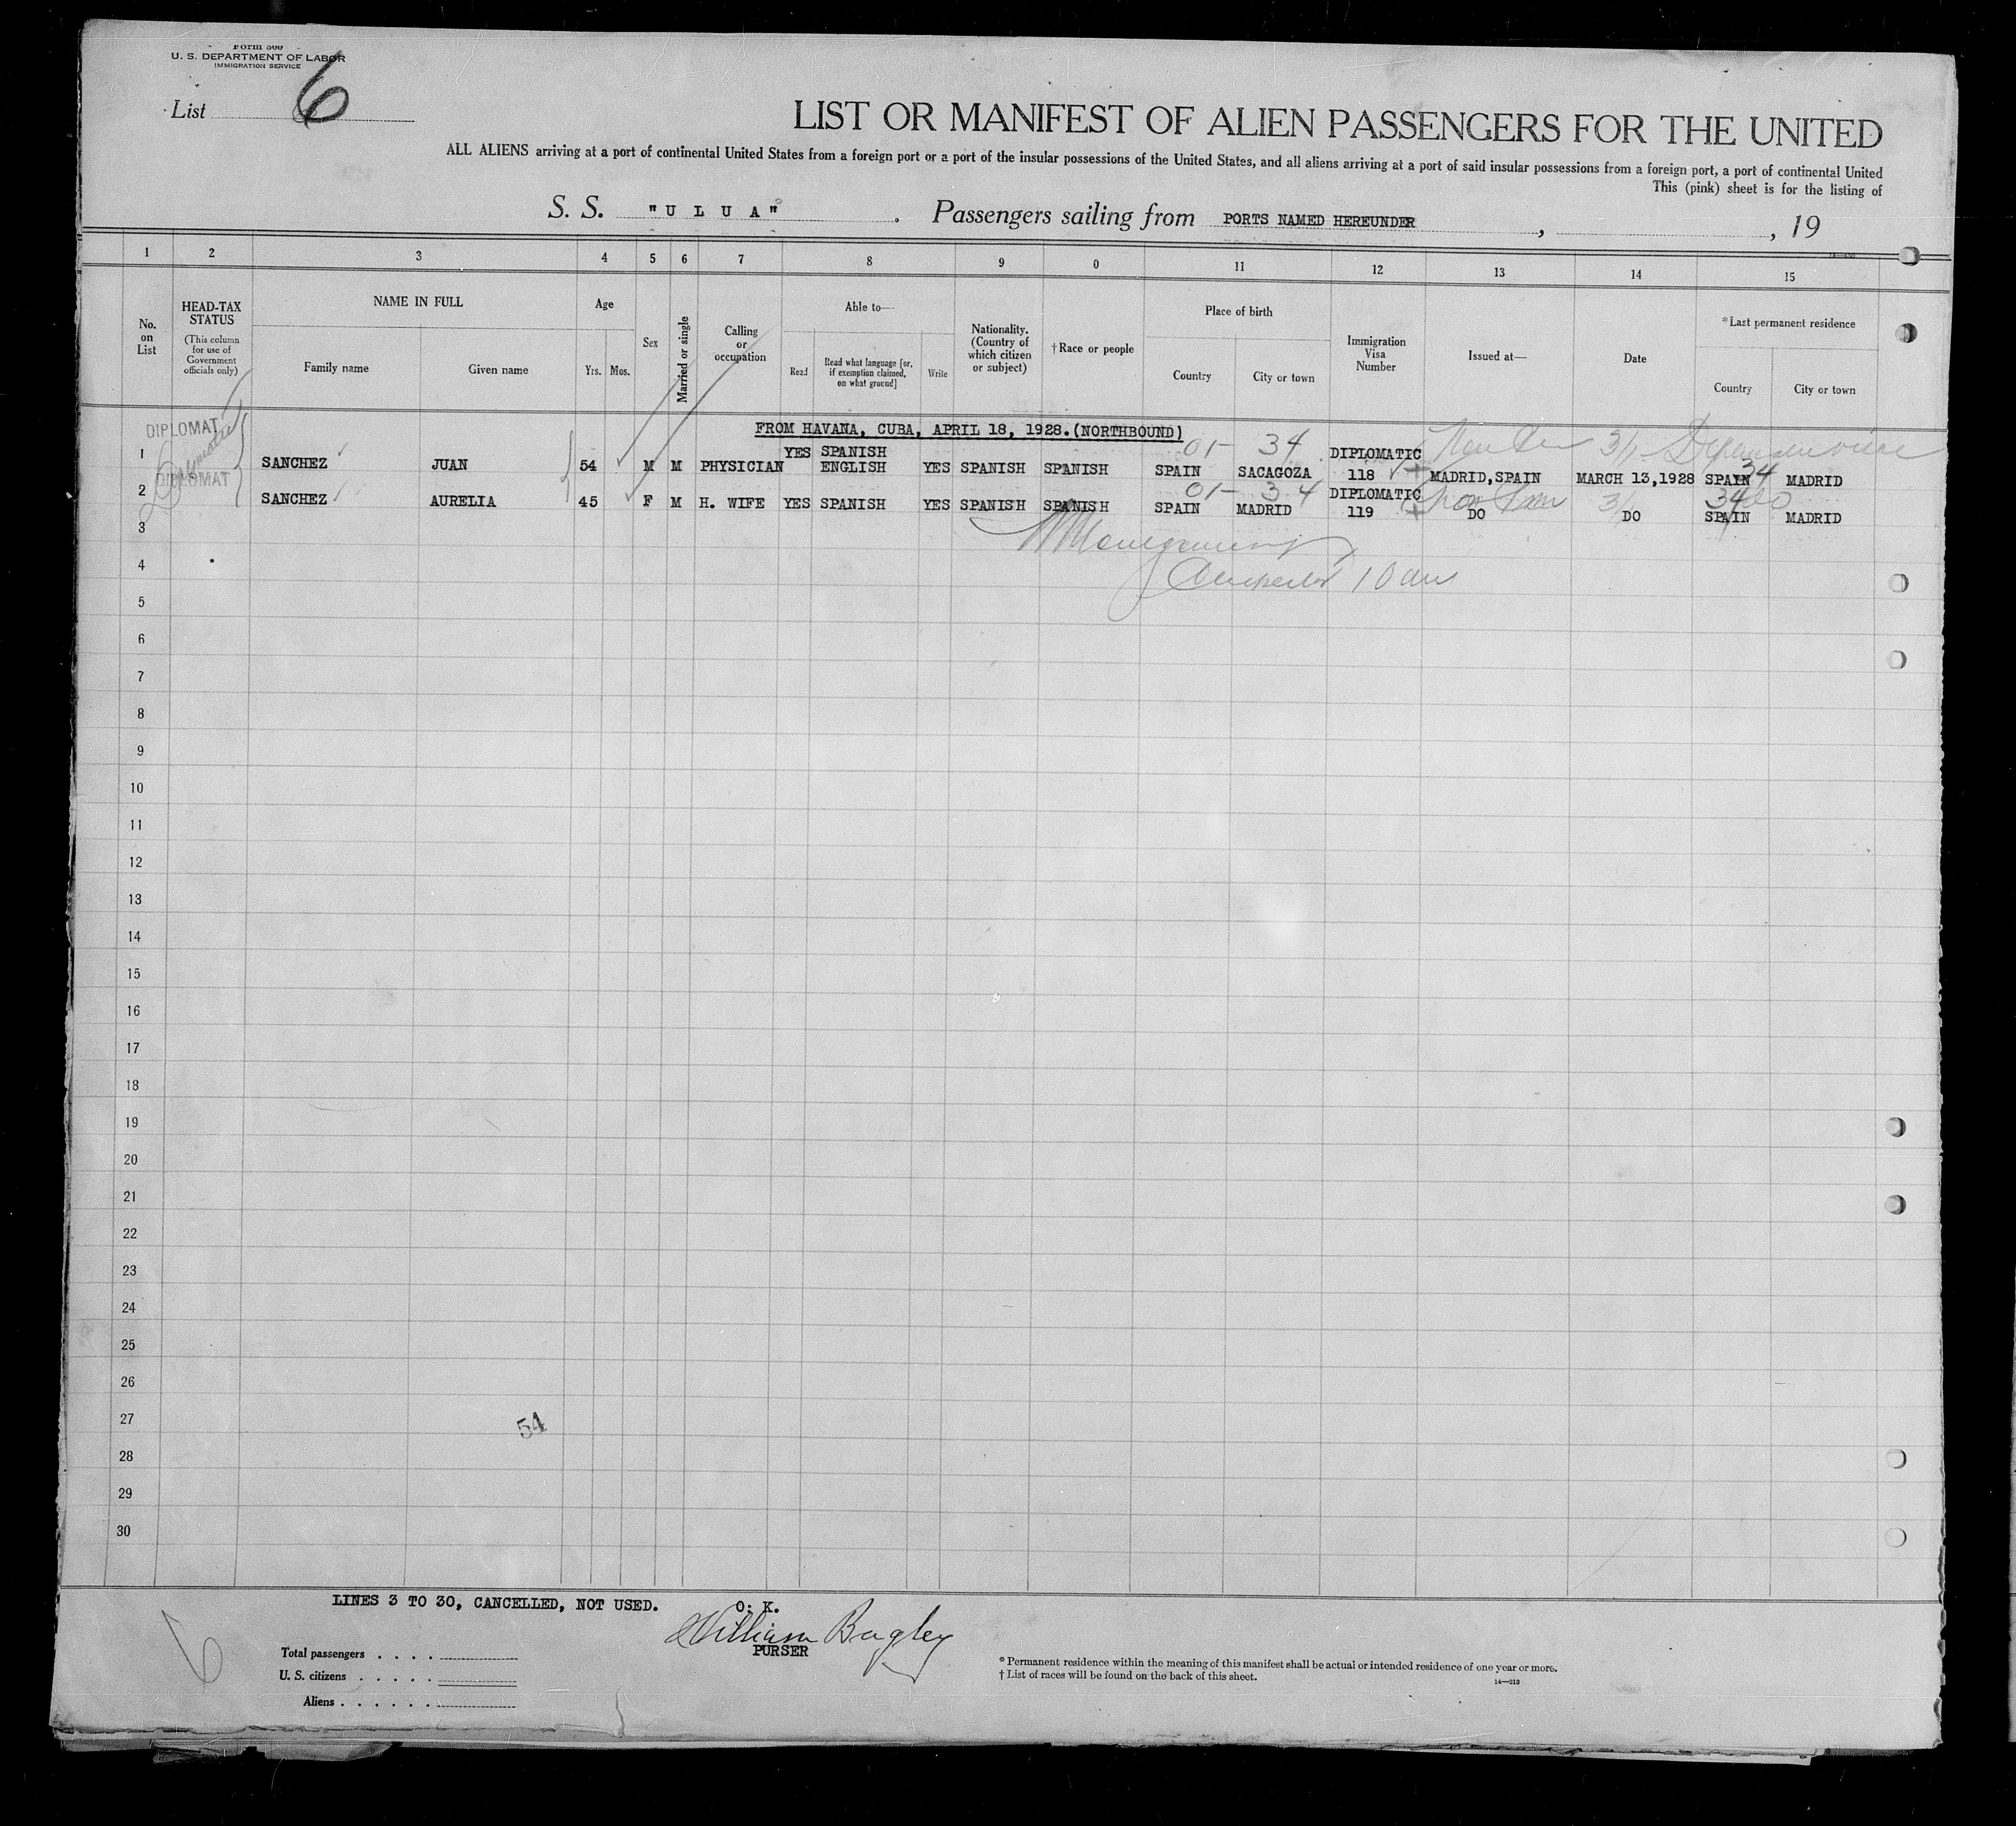 Form 500
U. S. DEPARTMENT OF LABOR
IMMIGRATION SERVICE
List 6
LIST OR MANIFEST OF ALIEN PASSENGERS FOR THE UNITED
ALL ALIENS arriving at a port of continental United States from a foreign port or a port of the insular possessions of the United States, and all aliens arriving at a port of said insular possessions from a foreign port, a port of continental United
This (pink) sheet is for the listing of
S. S. "U L U A" . Passengers sailing from PORTS NAMED HEREUNDER , , 19
1 2 3 4 5 6 7 8 9 0 11 12 13 14 15
No. on List
HEAD-TAX STATUS
(This column for use of Government officials only)
NAME IN FULL
Family name Given name
Age
Yrs. Mos.
Sex
Married or single
Calling or occupation
Able to—
Read
Read what language [or, if exemption claimed, on what ground]
Write
Nationality. (Country of which citizen or subject)
†Race or people
Place of birth
Country City or town
Immigration Visa Number
Issued at—
Date
*Last permanent residence
Country City or town
FROM HAVANA, CUBA, APRIL 18, 1928.(NORTHBOUND)
DIPLOMAT
01- 34
1 SANCHEZ JUAN 54 M M PHYSICIAN YES SPANISH ENGLISH YES SPANISH SPANISH SPAIN SACAGOZA DIPLOMATIC 118 MADRID,SPAIN MARCH 13,1928 SPAIN MADRID
34
DIPLOMAT
01- 34
2 SANCHEZ AURELIA 45 F M H. WIFE YES SPANISH YES SPANISH SPANISH SPAIN MADRID DIPLOMATIC 119 DO DO SPAIN MADRID
3
4
10 am
5
6
7
8
9
10
11
12
13
14
15
16
17
18
19
20
21
22
23
24
25
26
27
54
28
29
30
LINES 3 TO 30, CANCELLED, NOT USED.
O. K.
William Bagley
PURSER
6
Total passengers . . . .
U. S. citizens . . . . .
Aliens . . . . . .
* Permanent residence within the meaning of this manifest shall be actual or intended residence of one year or more.
† List of races will be found on the back of this sheet.
14—213